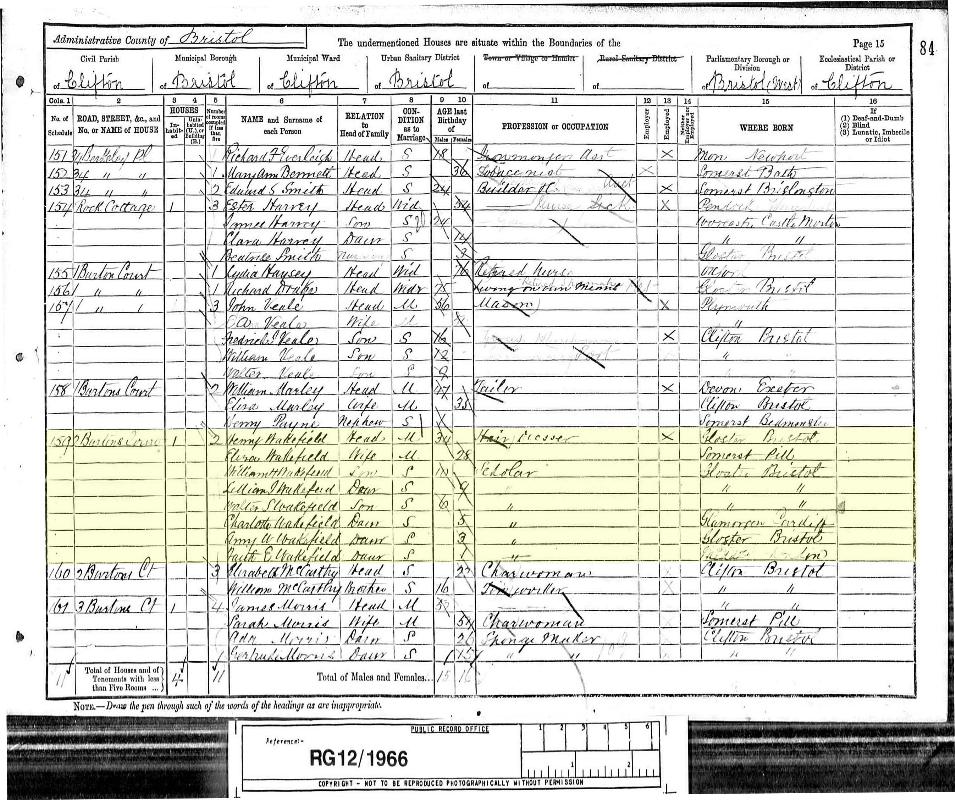 Administrative County of Bristol
The undermentioned Houses are situate within the Boundaries of the
Page 15
84
Civil Parish
Municipal Borough
Municipal Ward
Urban Sanitary District
Town or Village or Hamlet
Rural Sanitary District
Parliamentary Borough or Division
Ecclesiastical Parish or District
of Clifton
of Bristol
of Clifton
of Bristol
of
of
of Bristol (West)
of Clifton
Cols. 1 2 3 4 5 6 7 8 9 10 11 12 13 14 15 16
No. of Schedule
ROAD, STREET, &c., and No. or NAME of HOUSE
HOUSES
In-habited
Uninhabited (U.), or Building (B.)
Number of rooms occupied if less than five
NAME and Surname of each Person
RELATION to Head of Family
CONDITION as to Marriage
AGE last Birthday of
Males
Females
PROFESSION or OCCUPATION
Employer
Employed
Neither Employer nor Employed
If
WHERE BORN
(1) Deaf-and-Dumb
(2) Blind
(3) Lunatic, Imbecile or Idiot
151 Richard Everleigh Head S 18 Ironmonger Asst X Mon Newport
152 34 " " 1 Mary Ann Bennett Head S 36 Tobacconist X Somerset Bath
153 34 " " 2 Edward S Smith Head S 24 Builder X Somerset Brislington
154 Rock Cottage 1 3 Ester Harvey Head Wid 54 X
James Harvey Son S 24 Worcester Castle Morton
Clara Harvey Daur S 14 " "
Beatrice Smith S 3 Gloster Bristol
155 1 Burton Court 1 Lydia Head Wid 76 Retired Nurse
156 1 " " 1 Richard Head Widr 75 Living on own Means Gloster Bristol
157 1 " " 3 John Veale Head M 56 Mason X Plymouth
Veale Wife "
Fredrick J Veale Son S 16 X Clifton Bristol
William Veale Son S 12 "
Walter Veale Son S 9
158 1 Burtons Court 2 William Marley Head M 47 Tailor X Devon Exeter
Eliza Marley Wife M 38 Clifton Bristol
Henry Payne Nephew S Somerset Bedminster
159 2 Burtons Court 1 2 Henry Wakefield Head M 34 Hair Dresser X Gloster Bristol
Eliza Wakefield Wife M 28 Somerset Pill
William H Wakefield Son S 10 Scholar Gloster Bristol
Lillian J Wakefield Daur S 9 " " "
Walter S Wakefield Son S 6 " " "
Charlotte Wakefield Daur S 5 " Glamorgan Cardiff
Amy W Wakefield Daur S 3 " Gloster Bristol
E Wakefield Daur S 1 "
160 2 Burtons Ct 3 Elizabeth McCarthy Head S 22 Charwoman Clifton Bristol
William McCarthy Brother S 16 " "
161 3 Burtons Ct 1 4 James Morris Head M
Sarah Morris Wife M 54 Charwoman Somerset Pill
Ada Morris Daur S 26 Sponge Maker Clifton Bristol
Gertrude Morris Daur S 15 " " " "
11 Total of Houses and of Tenements with less than Five Rooms ... 4 11 Total of Males and Females... 15 16
NOTE.—Draw the pen through such of the words of the headings as are inappropriate.
PUBLIC RECORD OFFICE
1 2 3 4 5 6
Reference:-
RG12/1966
1 2
COPYRIGHT - NOT TO BE REPRODUCED PHOTOGRAPHICALLY WITHOUT PERMISSION